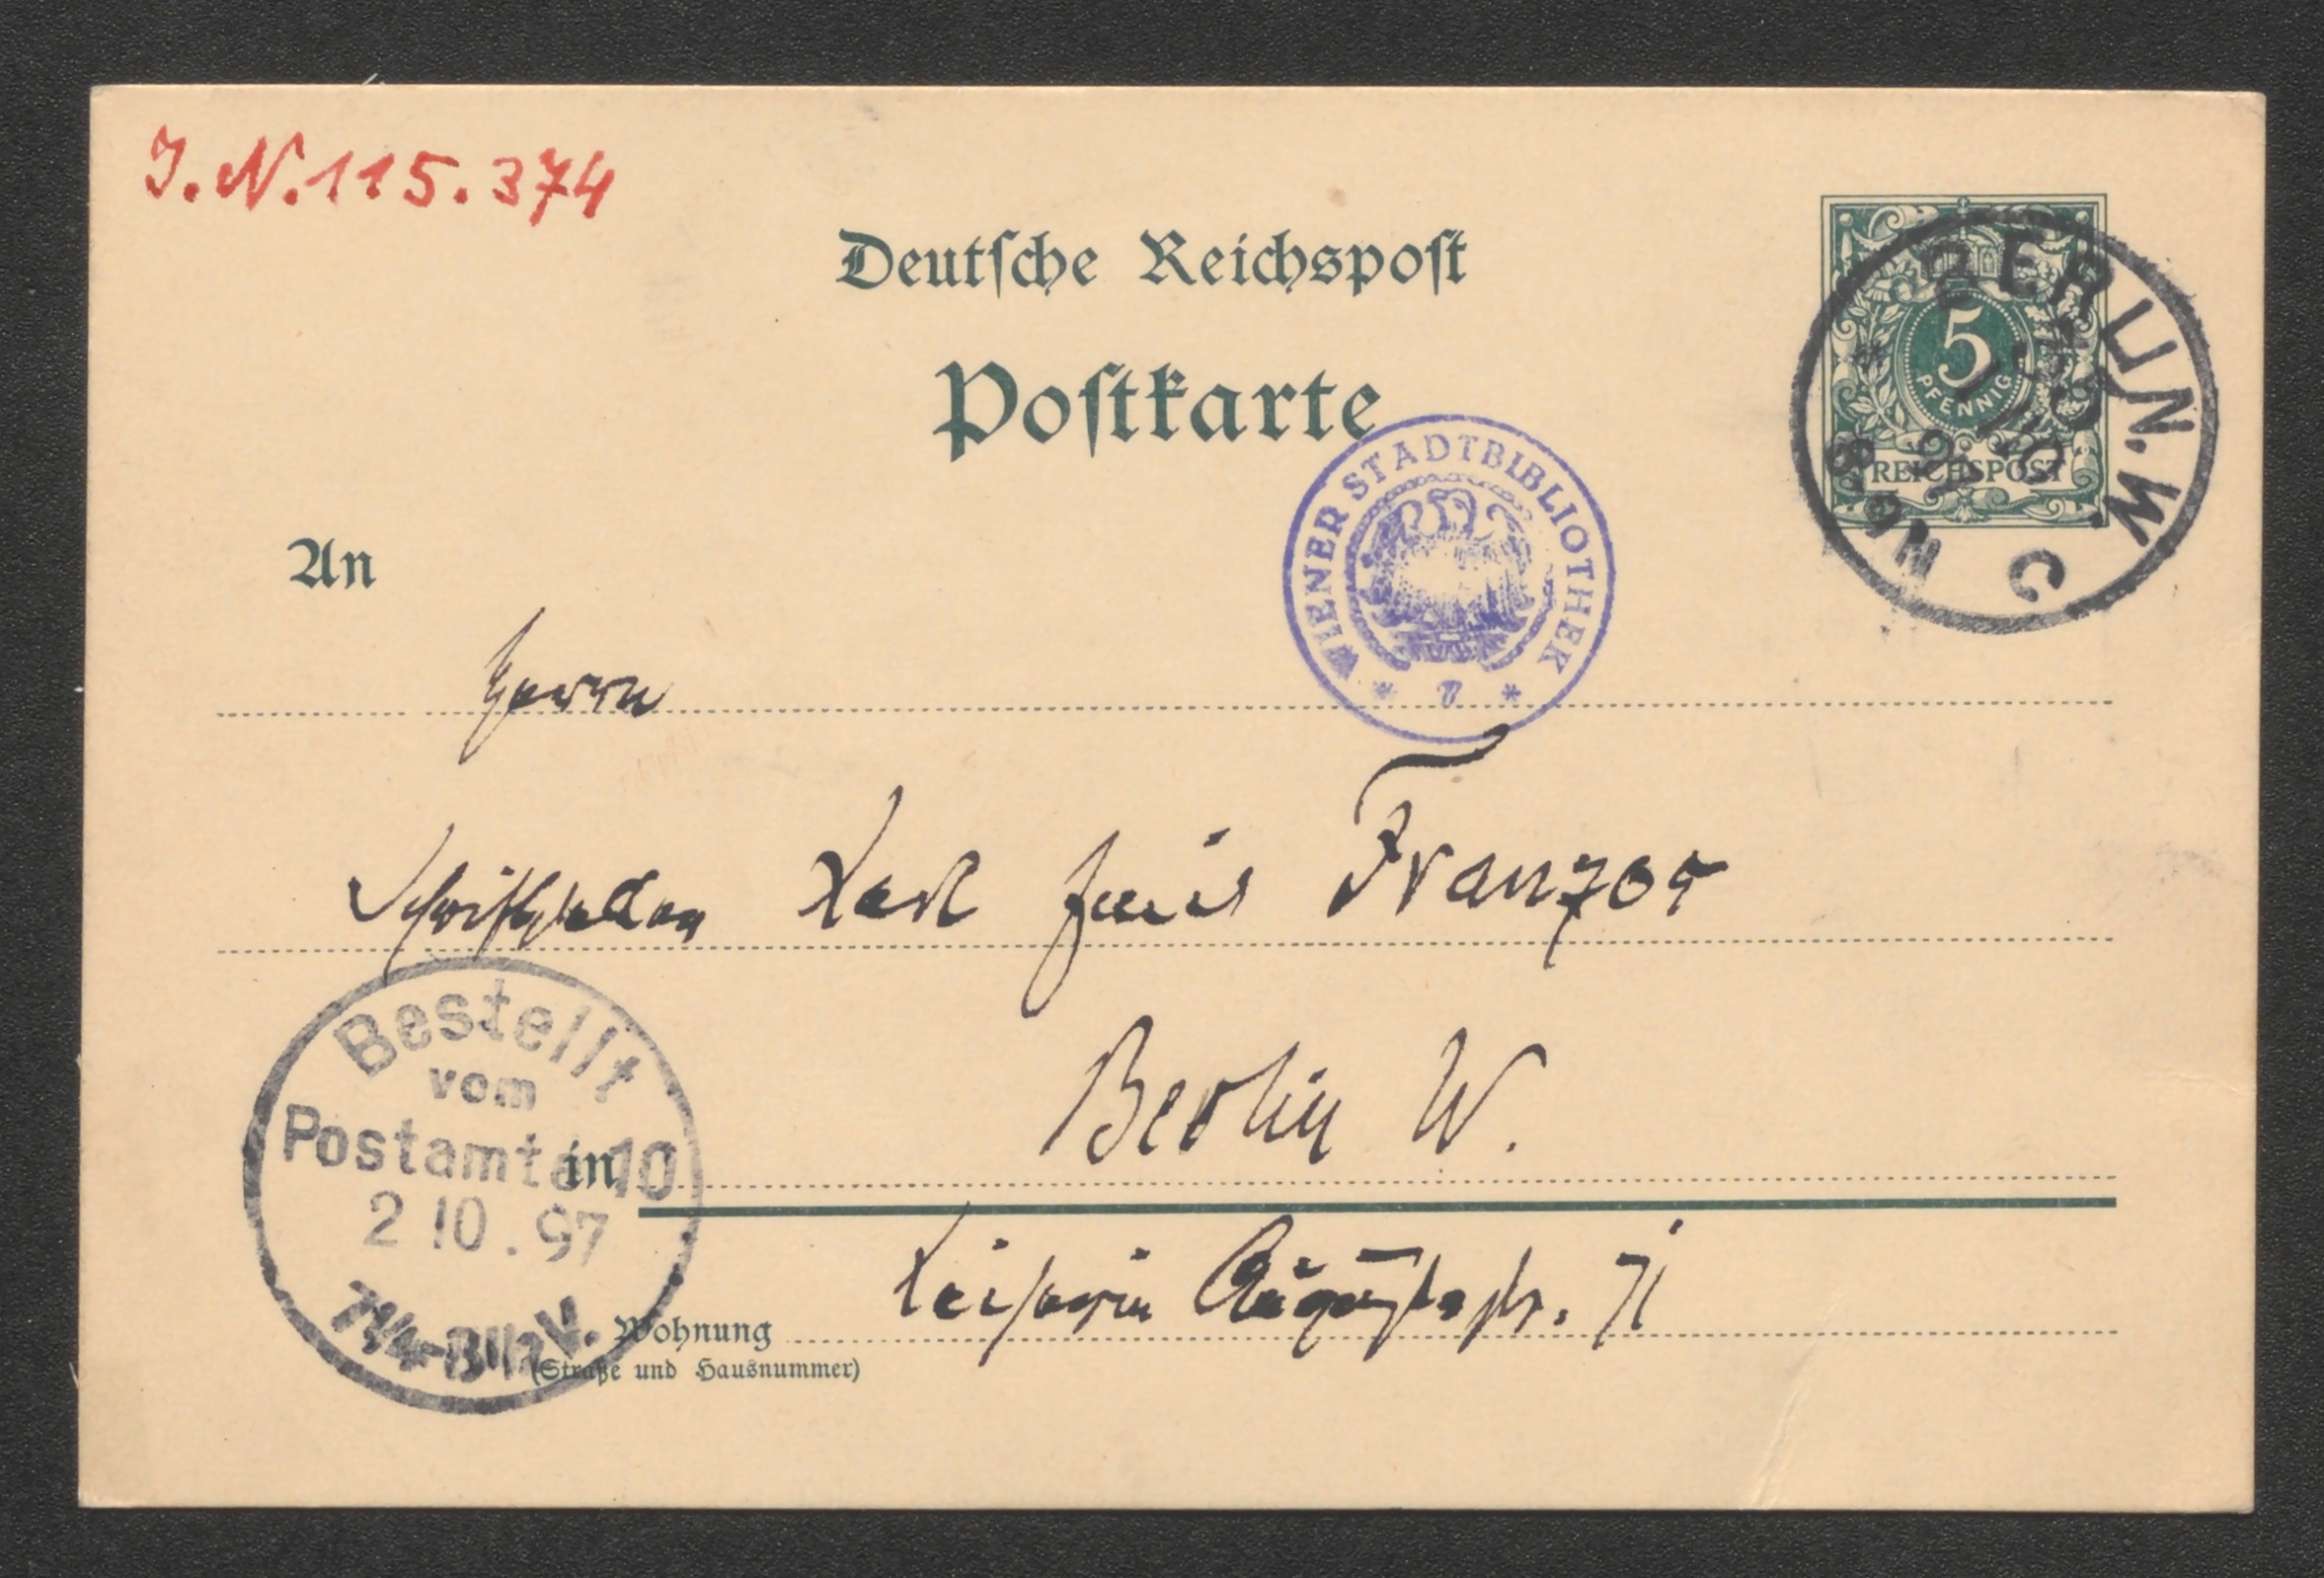 J.N.115.374
Deutsche Reichspost
Postkarte
5
PFENNIG
REICHSPOST
BERLIN.W.
C
8-9 N
WIENER STADTBIBLIOTHEK
* 7 *
An
Herrn
Schriftsteller Karl Emil Franzos
Bestellt
vom
Postamte 10
2 10. 97
7¼-8½ V.
in Berlin W.
Wohnung Kaiserin Augustastr. 71
(Straße und Hausnummer)